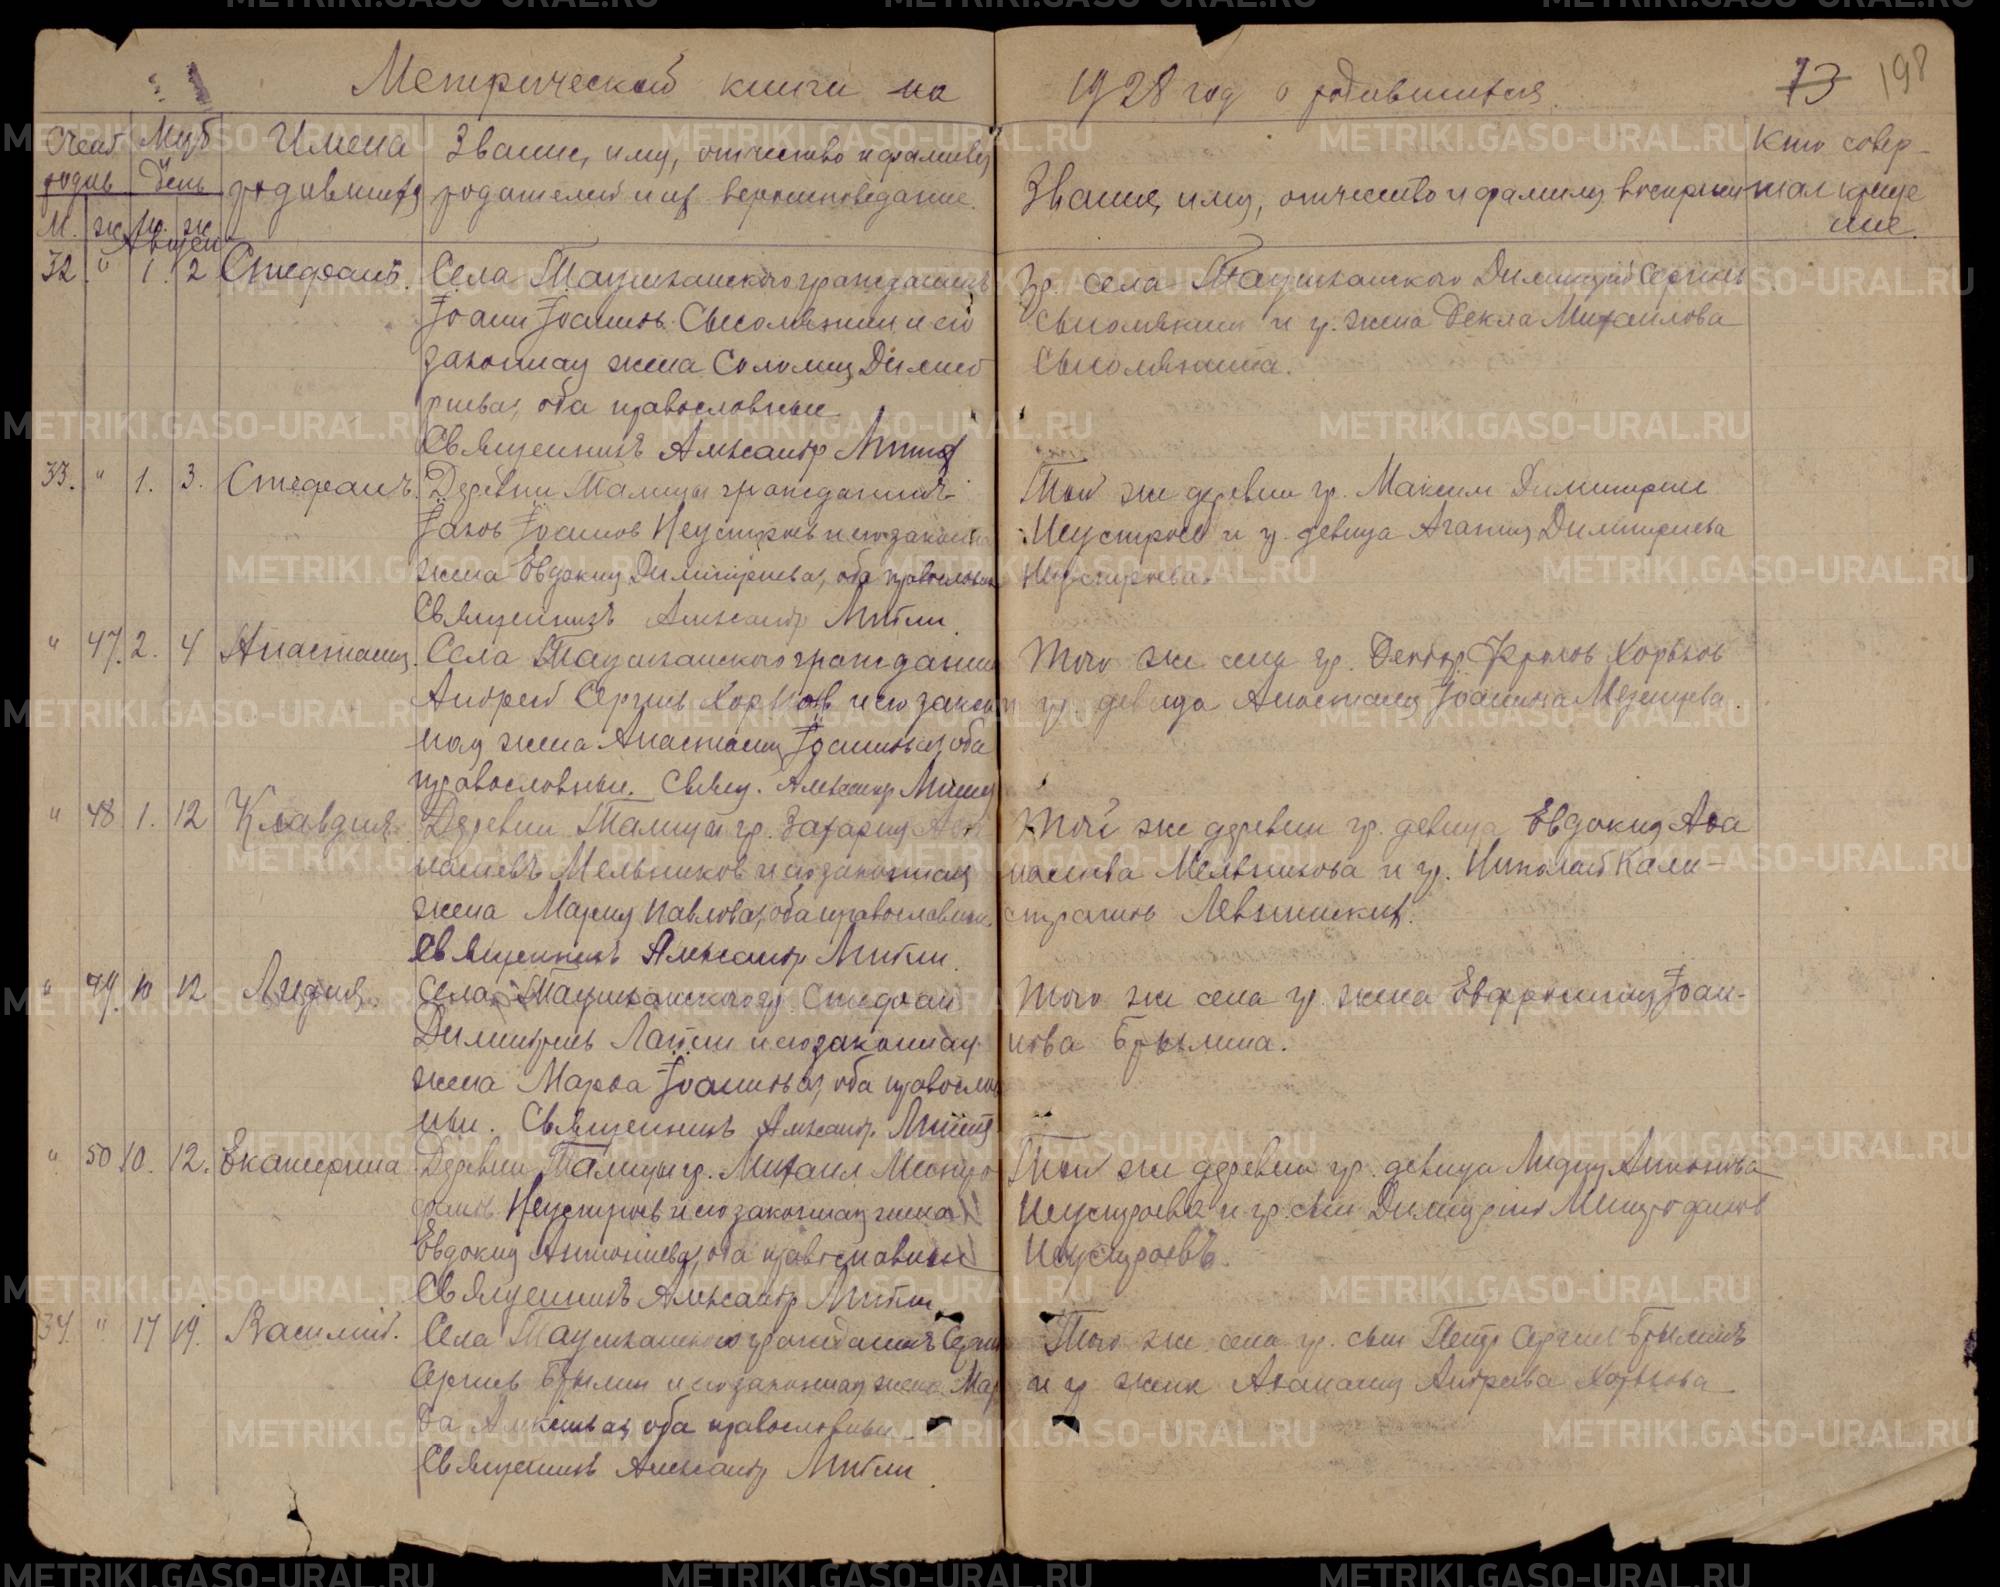 Метрической книги на 1928 год о родившихся.
73 198
Счет родив Мцъ День Имена родившихся
Звание, имя, отчество и фамилия родителей и их вероисповедание.
Звание, имя, отчество и фамилия восприем
Кто совершал крещение.
М. ж. м. ж.
Август
32. " 1. 2 Стефанъ.
Села Таушканского гражданинъ
Иоанн Иоаннов и его
законная жена Соломия Димит
риева, оба православные
Священникъ Александр
Гр. села Таушканского Димитрий Сергиев
и гр. жена Фекла Михайлова
33. " 1. 3. Стефанъ.
Деревни Талицы гражданинъ
Иаков Иоаннов Неустроев и его законн
жена Евдокия Димитриева, оба православн
Священникъ Александр
Той же деревни гр. Максим Димитриев
Неустроев и гр. девица Агапия Димитриева
Неустроева.
" 47. 2. 4 Анастасия.
Села Таушканского гражданин
Андрей Сергиев Хорьков и его закон
ная жена Анастасия Иоаннова, оба
православные. Свящ. Александр
Того же села гр. Хорьков
и гр. девица Анастасия Иоаннова
" 48 1. 12 Клавдия.
Деревни Талицы гр. Захария Аѳа
насиевъ Мельников и его законная
жена Мария Павлова, оба православные.
Священникъ Александр
Той же деревни гр. девица Евдокия Аѳа
насиева Мельникова и гр. Николай Кали-
стратов
" 49. 10 12 Лидия.
Села Таушканского гр. Стефан
Димитриев и его законная
жена Марѳа Иоаннова, оба православ
ны. Священникъ Александр
Того же села гр. жена Евфросиния Иоан-
нова Брылина.
" 50 10. 12. Екатерина
Деревни Талицы гр. Михаил Митро
фанов Неустроев и его законная жена
Евдокия Антониева, оба православные
Священникъ Александр
Той же деревни гр. девица Лидия Антонова
Неустроева и гр. сын Димитрий Митрофанов
Неустроевъ.
34. " 17 19. Василий.
Села Таушканского гражданинъ Сергий
Сергиев Брылин и его законная жена Мар
ѳа Алексиева, оба православные
Священникъ Александр
Того же села гр. сын Петр Сергиев Брылинъ
и гр. жена Андреева Хорькова